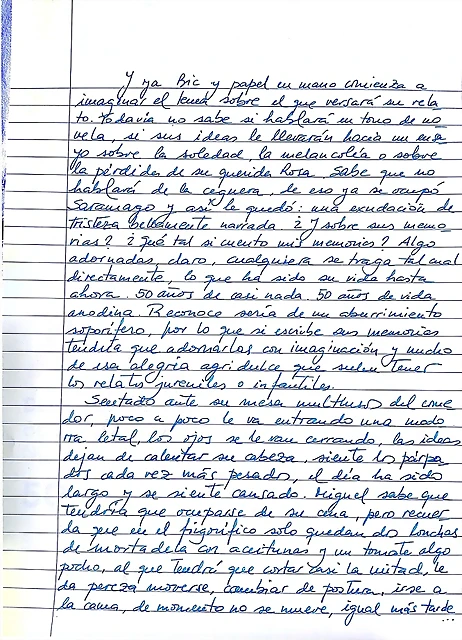 Y ya Bic y papel en mano comienza a
imaginar el tema sobre el que versará su rela
to. Todavía no sabe si hablará en tono de no
vela, si sus ideas le llevarán hacia un ensa
yo sobre la soledad, la melancolía o sobre
la pérdida de su querida Rosa. Sabe que no
hablará de la ceguera, de eso ya se ocupó
Saramago y así le quedó: una exudación de
tristeza bellamente narrada. ¿Y sobre sus memo
rias? ¿Qué tal si cuento mis memorias? Algo
adornadas, claro, cualquiera se traga tal cual
directamente, lo que ha sido su vida hasta
ahora. 50 años de casi nada. 50 años de vida
anodina. Reconoce sería de un aburrimiento
soporífero, por lo que si escribe sus memorias
tendría que adornarlas con imaginación y mucho
de esa alegría agridulce que suelen tener
los relatos juveniles o infantiles.
Sentado ante su mesa multiusos del come
dor, poco a poco le va entrando una modo
rra letal, los ojos se le van cerrando, las ideas
dejan de calentar su cabeza, siente los párpa
dos cada vez más pesados, el día ha sido
largo y se siente cansado. Miguel sabe que
tendría que ocuparse de su cena, pero recuer
da que en el frigorífico solo quedan dos lonchas
de mortadela con aceitunas y un tomate algo
pocho, al que tendrá que cortar casi la mitad, le
da pereza moverse, cambiar de postura, irse a
la cama, de momento no se mueve, igual más tarde...